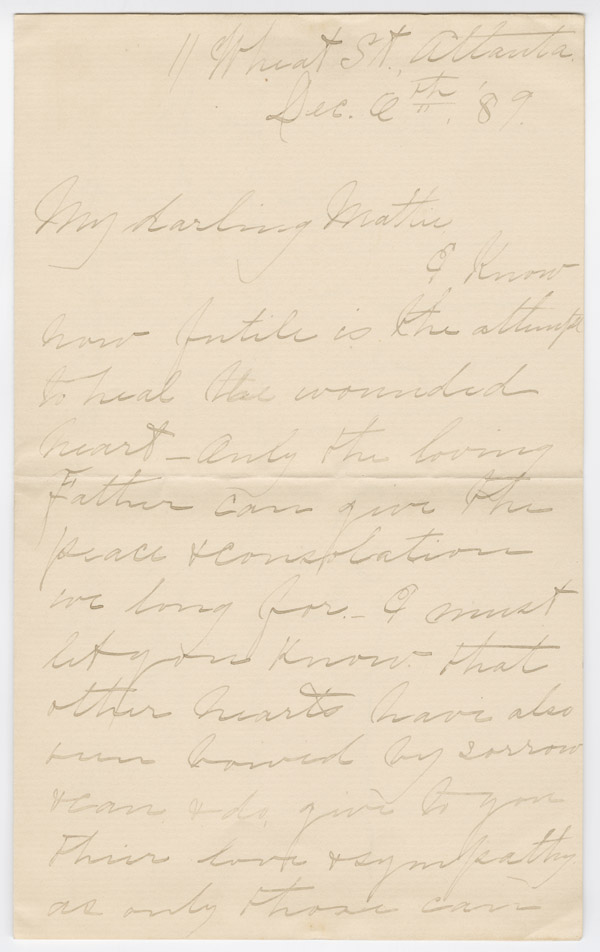 11 Wheat St., Atlanta.
Dec. 6th, '89.
My darling Mattie
I know
how futile is the attempt
to heal the wounded
heart - only the loving
Father can give the
peace & consolation
we long for. - I must
let you know that
other hearts have also
been bowed by sorrow
& can & do, give to you
their love & sympathy
as only those can